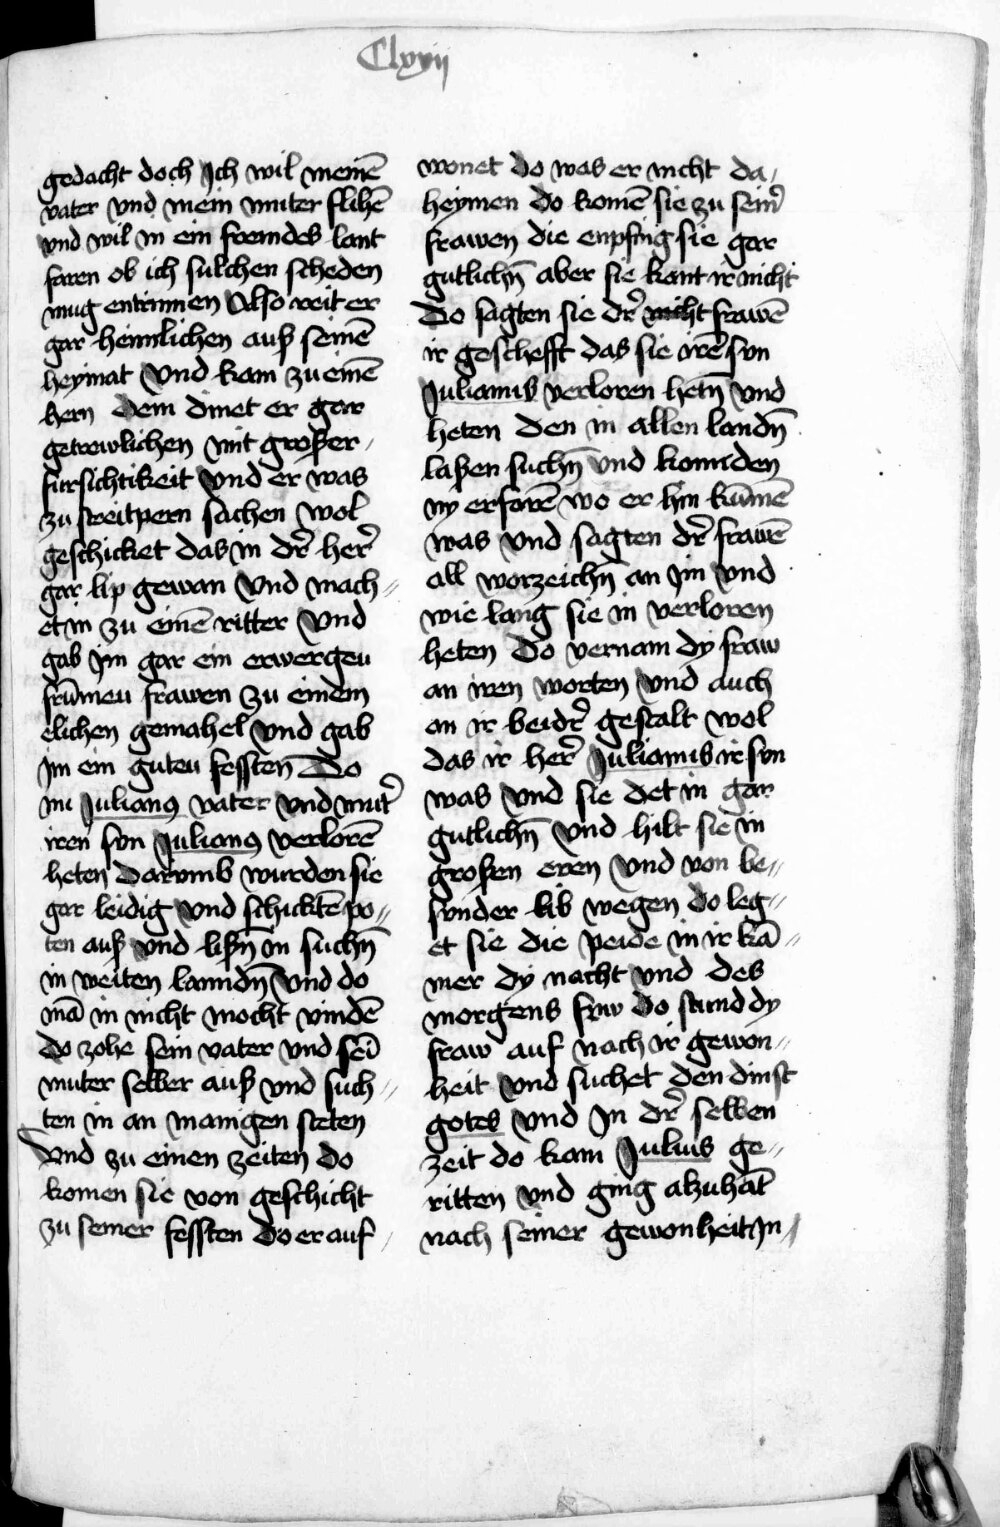 Clxvij
gedacht doch Ich wil meinē
vater vnd mein muter flihē
vnd wil in ein fremdes lant
faren ob ich sulchen scheden
mug entrinnen Also reit er
gar heimlichen auß seinē
heymat Vnd kam zu einē
hern dem dinet er gar
getrewlichen mit großer
fursichtikeit Vnd er was
zu streitpern sachen wol
geschicket das in dr̄ her̄
gar lip gewan Vnd mach-
et in zu einē ritter Vnd
gab Im gar ein erwergeu
frūmeu frawen zu einem
elichen gemahel Vnd gab
Im ein guteu fessten Do
nu Julianus vater vnd mut̄
iren sun Julianus verlorē
heten Darvmb wurden sie
gar leidig Vnd schicktē po-
ten auß vnd lißn̄ in suchn̄
in weiten lanndn̄ Vnd do
mā in nicht mocht vindē
do zohe sein vater vnd sei̅
muter selber auß vnd such-
ten in an manigen steten
Vnd zu einen zeiten do
komen sie von geschicht
zu seiner fessten do er auf
wonet do was er nicht da-
heymen do komē sie zu sein̄
frawen die enpfing sie gar
gutlichn̄ aber sie kant ir nicht
do sagten sie dr̄ nicht frawē
ir geschefft das sie irē sun
Julianus verloren hetn̄ Vnd
heten den in allen landn̄
laßen suchn̄ vnd konnden
ny erfarē wo er hin kūmē
was Vnd sagten dr̄ frawē
all worzeichn̄ an Im Vnd
wie lang sie in verloren
heten Do vernam dy fraw
an iren worten Vnd auch
an ir beidr̄ gestalt wol
das ir her̄ Julianus ir sun
was Vnd sie det in gar
gutlichn̄ Vnd hilt sie in
großen eren Vnd von be-
sunder lib wegen do leg-
et sie die peide in ir kā-
mer dy nacht Vnd des
morgens frw do stund dy
fraw auf nach ir gewon-
heit Vnd suchet den dinst
gotes Vnd In dr̄ selben
zeit do kam Julius ge-
ritten Vnd ging alzuhāt
nach seiner gewonheit In